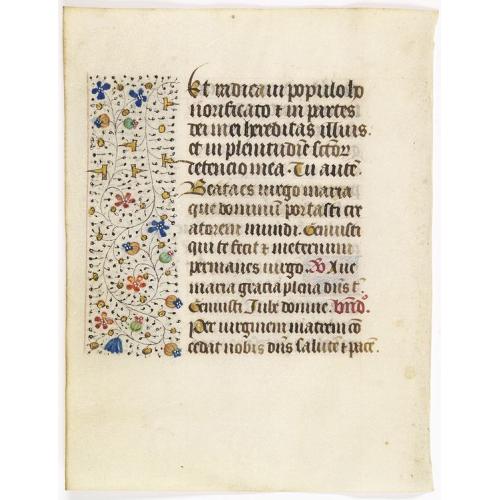 Et radicavi populo ho
norificato et in partes
dei mei hereditas illius.
et in plenitudīe sctōr
detencio mea. Tu autē.
Beata es virgo maria
que dominum portasti cre
atorem mundi. Genuisti
qui te fecit et in eternum
permanes virgo. V Ave
maria gracia plena dn̄s t̄.
Genuisti Iube domne. bn̄do.
Per virginem matrem cō
cedat nobis dn̄s salutē et pacē.